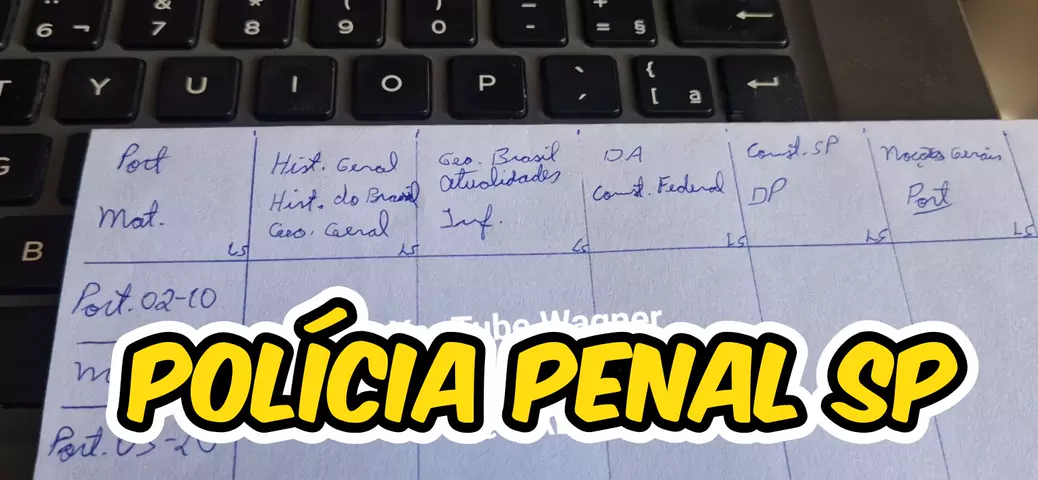 6 ¬ & 7 8 9 ( 0 - + = §
T Y U I O P ` { [ ª
G
B
Port
Mat.
Hist. Geral
Hist. do Brasil
Geo. Geral
Geo. Brasil
atualidades
Inf.
DA
Const. Federal
Const. SP
DP
Noções Gerais
Port
Port. 02-10
Tube Wagner
POLÍCIA PENAL SP
Port. 03-20